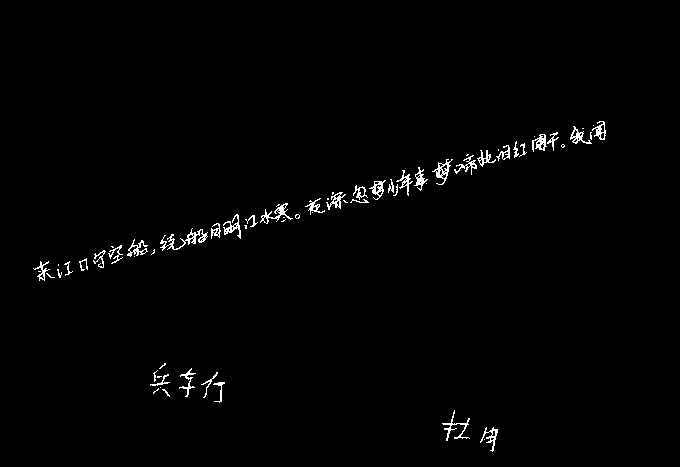 来江口守空船,绕船月明江水寒。夜深忽梦少年事梦啼妆泪红阑干。我闻
兵车行
杜甫